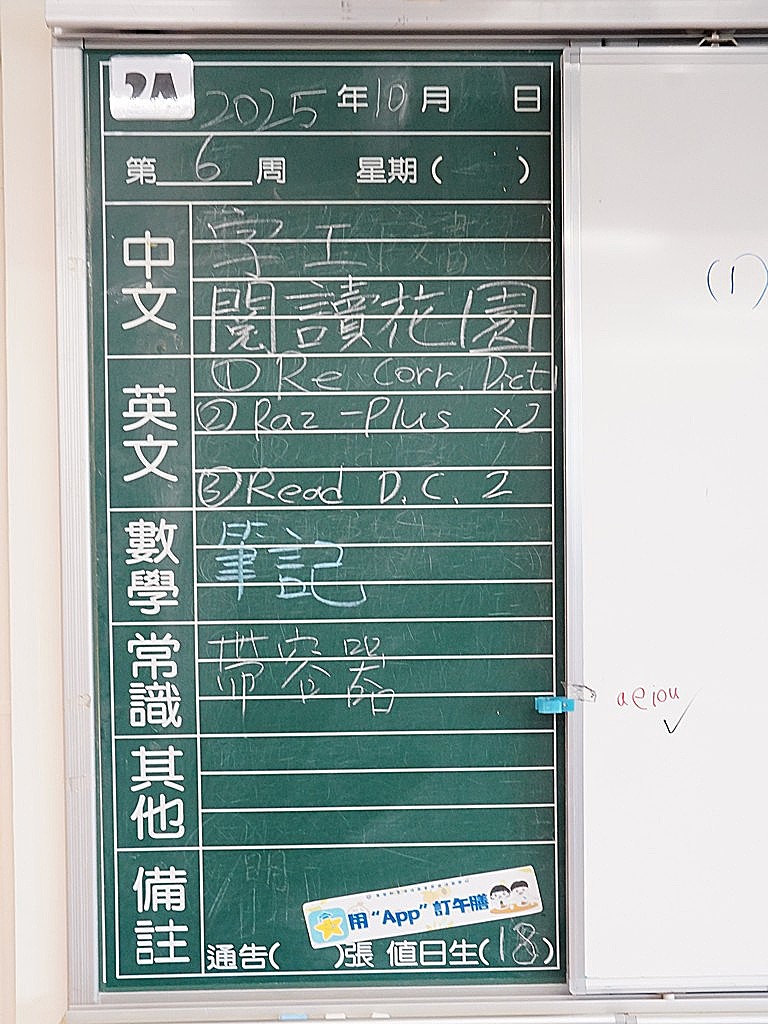 2A
2025 年 10 月 日
第 6 周 星期( )
中文
字工
閱讀花園
英文
① Re. Corr. Dict
② Raz-Plus x2
③ Read D.C. 2
數學
筆記
常識
帶容器
其他
備註
用“App”訂午膳
通告( )張 值日生(18)
(1)
aeiou